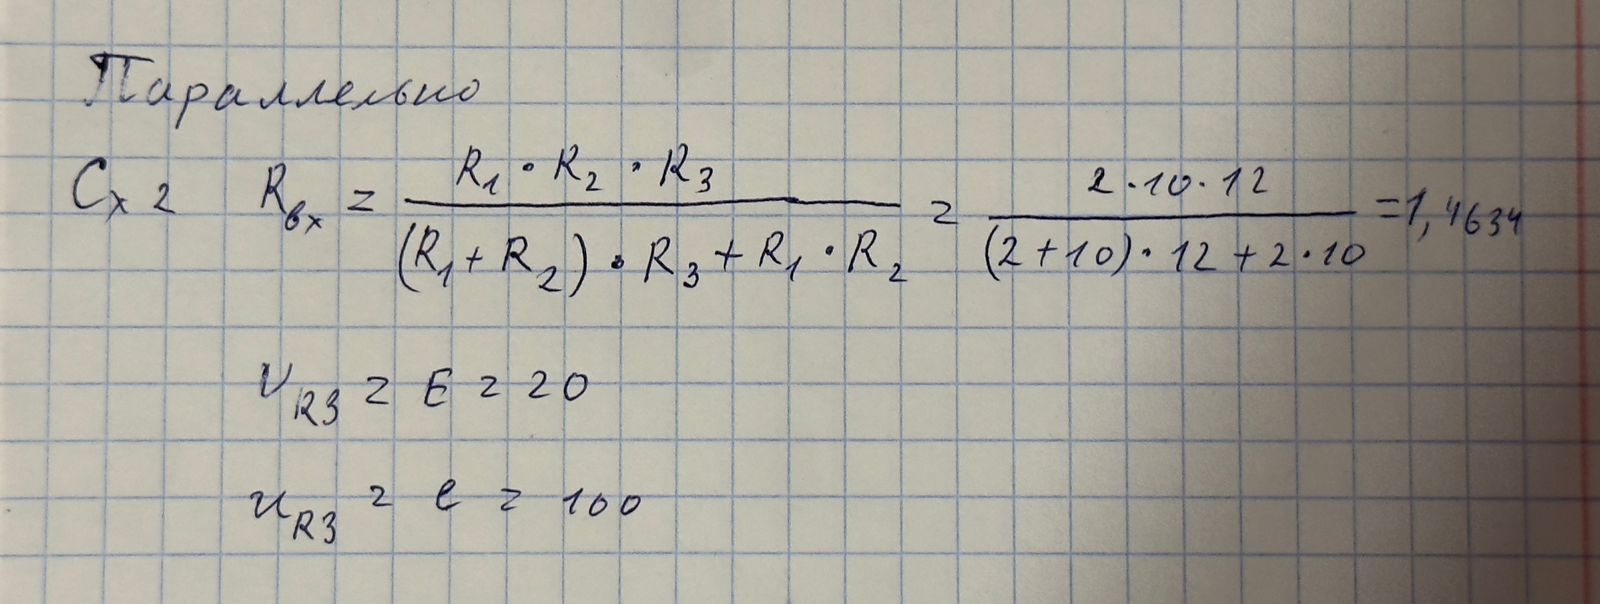 Параллельно
Сх 2 Rвх = R1 · R2 · R3 / (R1 + R2) · R3 + R1 · R2 = 2 · 10 · 12 / (2 + 10) · 12 + 2 · 10 = 1,4634
UR3 = E = 20
uR3 = e = 100